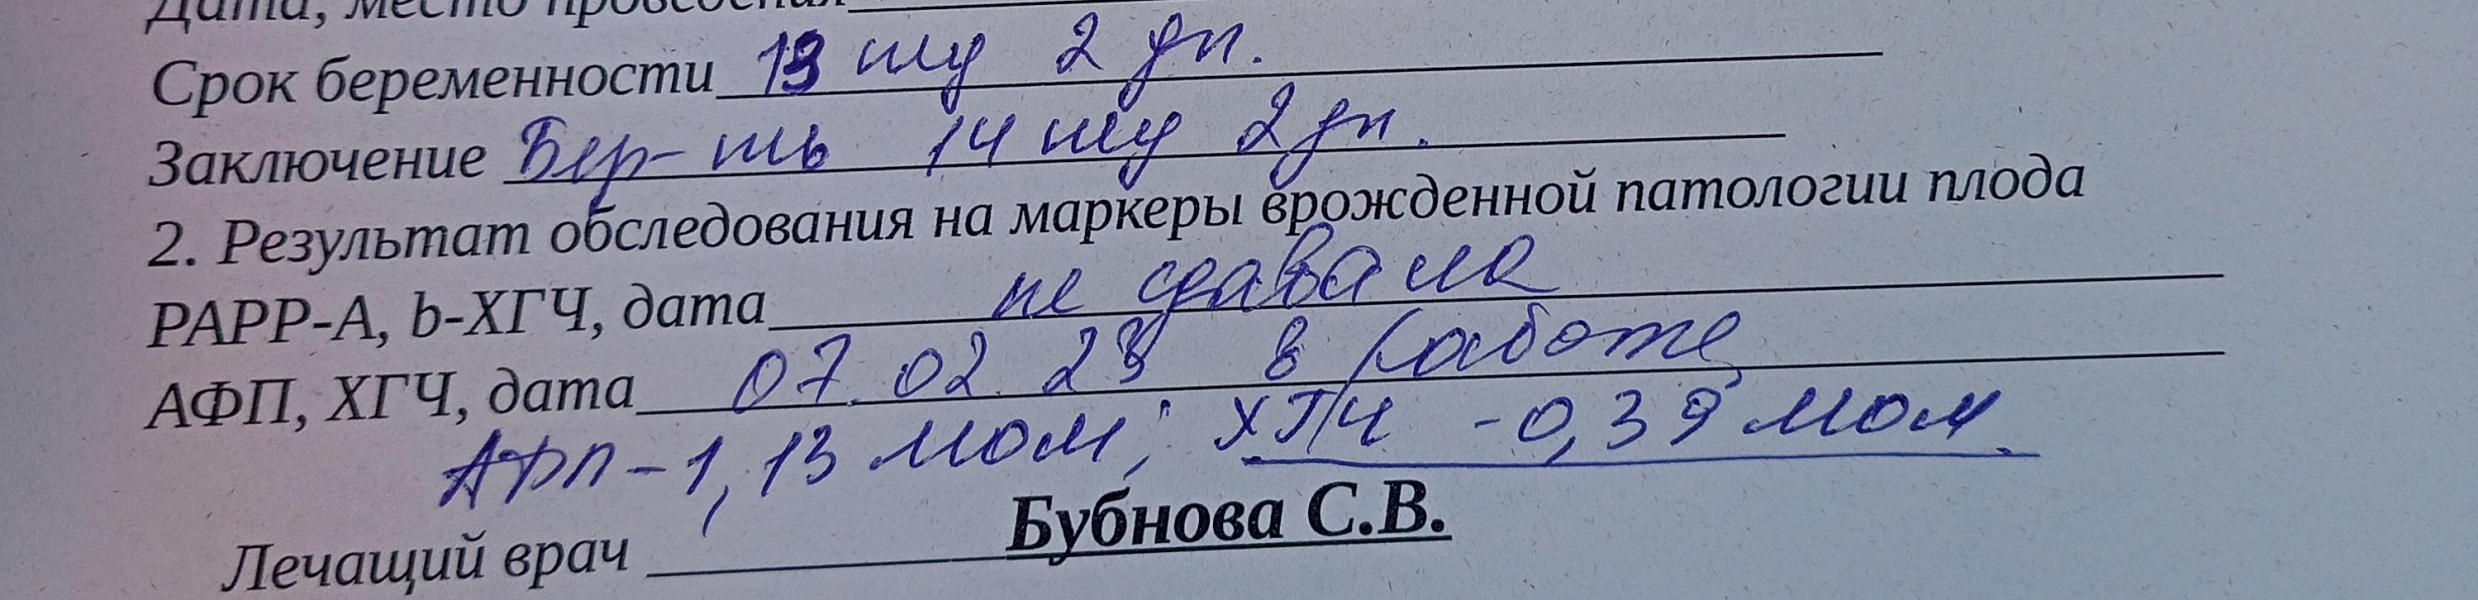 Дата, место проведения
Срок беременности 13 нед 2 дн.
Заключение Бер-ть 14 нед 2 дн.
2. Результат обследования на маркеры врожденной патологии плода
PAPP-A, b-ХГЧ, дата не сдавала
АФП, ХГЧ, дата 07.02.23 в работе
АФП - 1,13 мом; ХГЧ - 0,39 мом.
Лечащий врач Бубнова С.В.